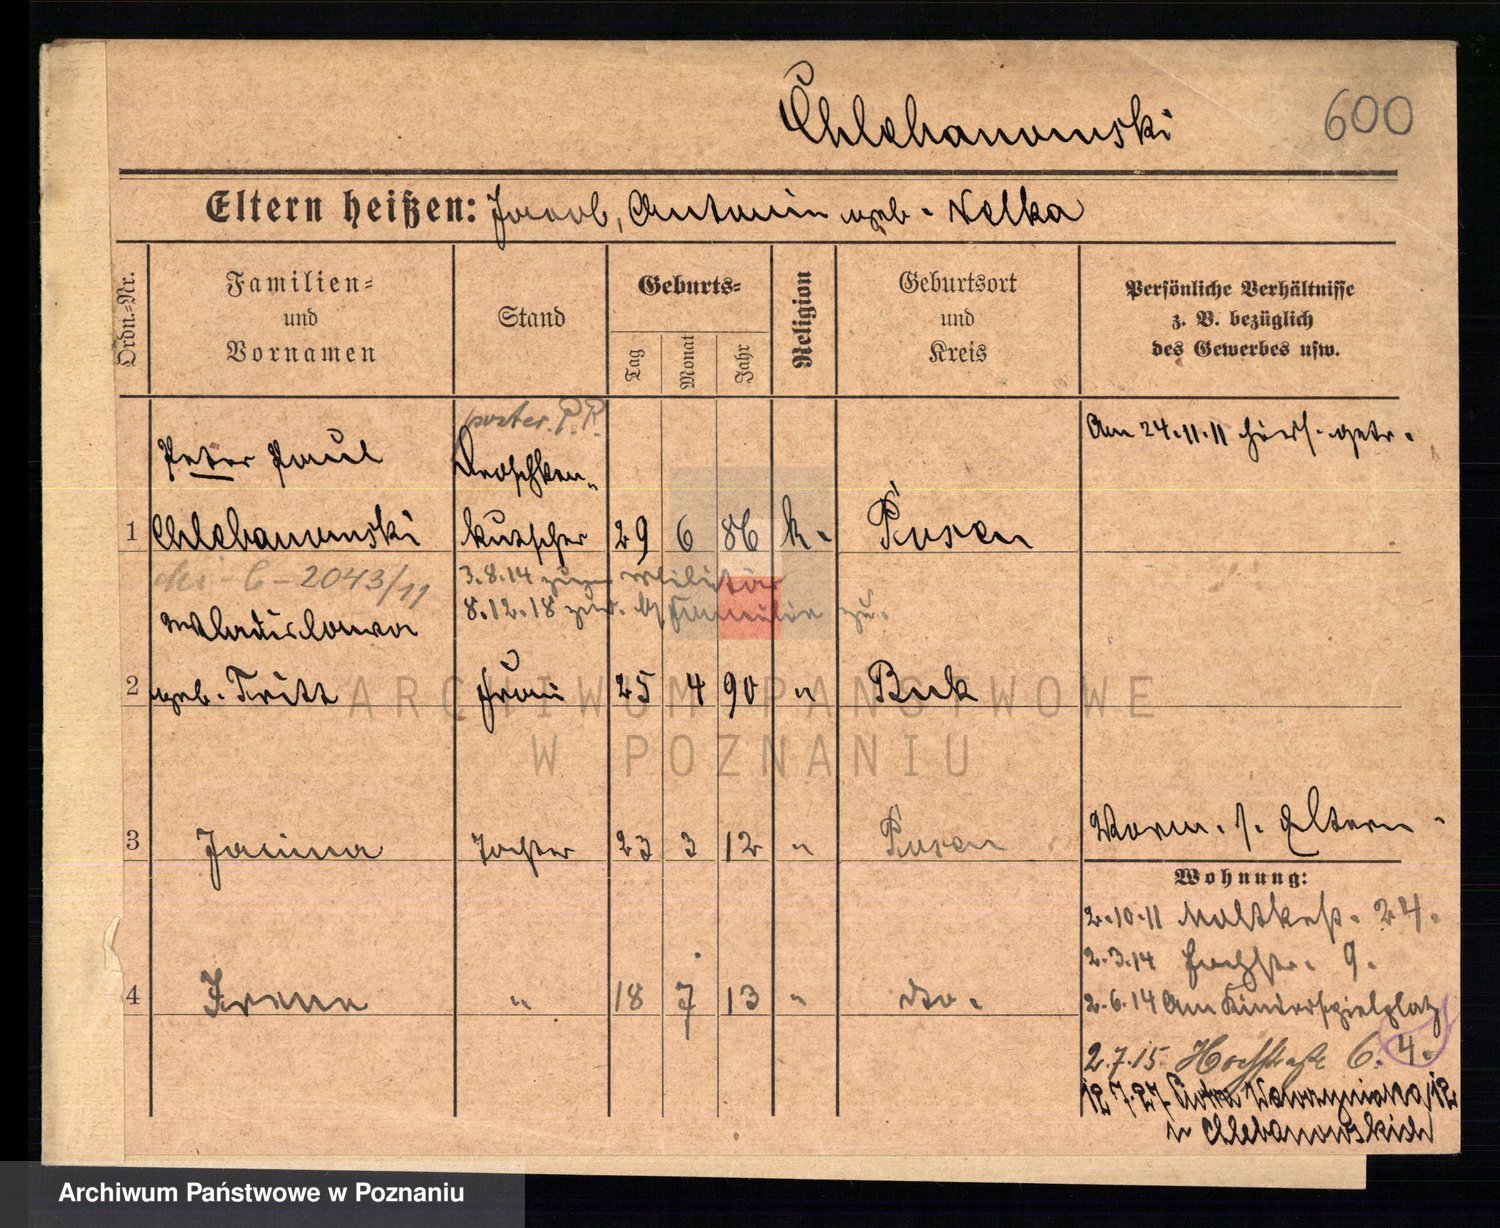 Chlebanowski
600
Eltern heißen: Jacob, Antonin geb. Nelka
Ordn.-Nr.
Familien-
und
Vornamen
Stand
Geburts-
Tag
Monat
Jahr
Religion
Geburtsort
und
Kreis
Persönliche Verhältnisse
z. B. bezüglich
des Gewerbes usw.
Am 24.11.11 hiers. getr.
P.P.
Peter Paul
Droschken-
1 Chlebanowski kutscher 29 6 86 k. Posen
6 - 2043/11
3.8.14 zum Militär
8.12.18 zur. Familie zu.
Wladislawa
2 geb. Tritt Frau 25 4 90 " Buk
3 Janina Tochter 23 3 12 " Posen
Vorm. s. Eltern
Wohnung:
2.10.11 Moltkestr. 24.
2.3.14 9.
4 Irena " 18 7 13 " do.
2.6.14 Am Kinderspielplatz
4.
2.7.15 6.
12.7.27 Piotra Wawrzyniaka 12
u Chlebanowskich
ARCHIWUM PAŃSTWOWE
W POZNANIU
Archiwum Państwowe w Poznaniu